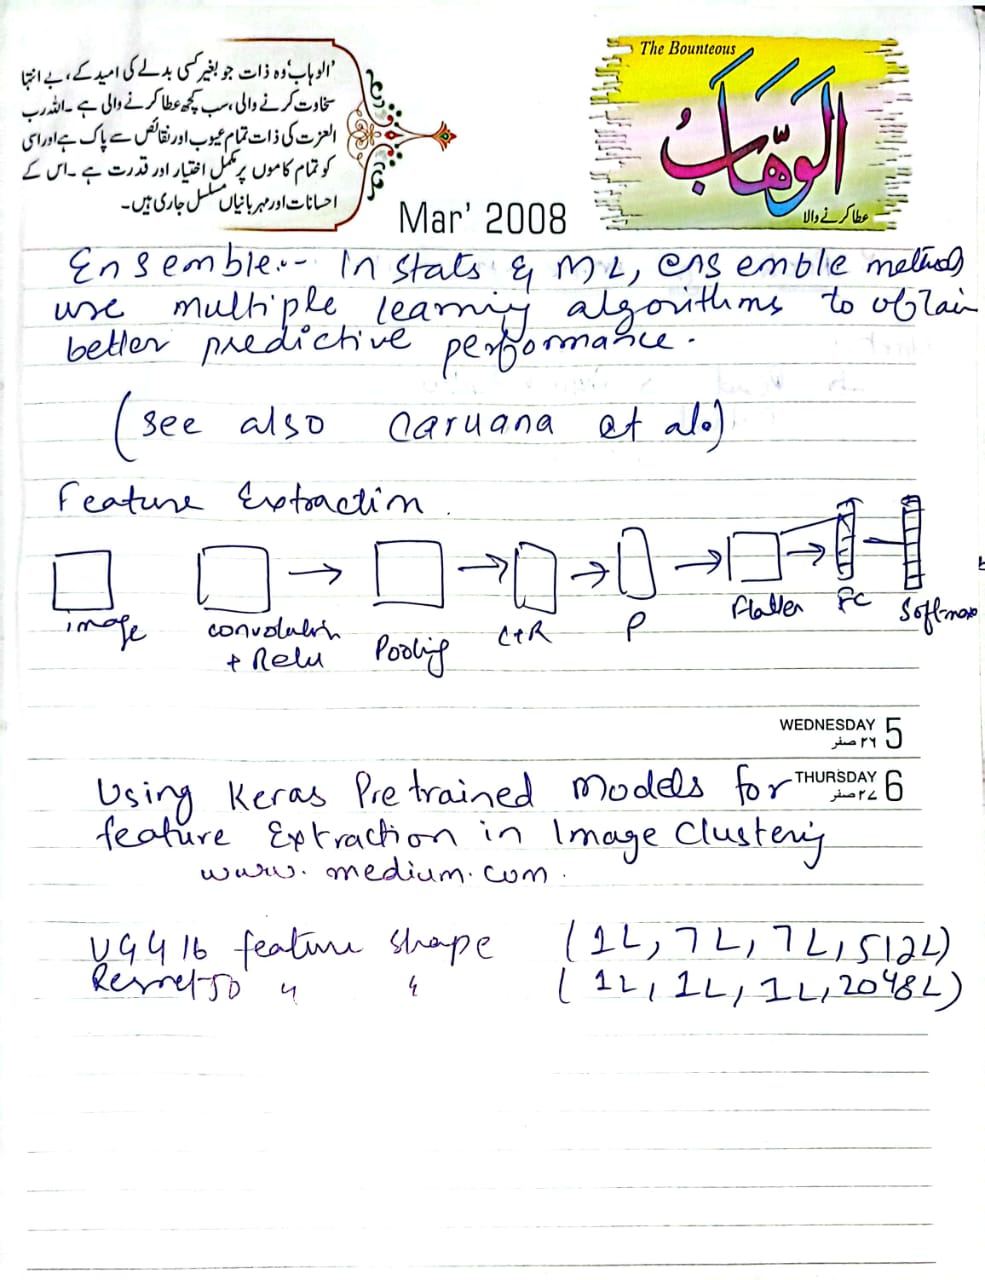 'الوہاب' وہ ذات جو بغیر کسی بدلے کی امید کے، بے انتہا
سخاوت کرنے والی، سب کچھ عطا کرنے والی ہے۔ اللہ رب
العزت کی ذات تمام عیوب اور نقائص سے پاک ہے اور اسی
کو تمام کاموں پر مکمل اختیار اور قدرت ہے۔ اس کے
احسانات اور مہربانیاں مسلسل جاری ہیں۔
The Bounteous
الوَهَّابُ
عطا کرنے والا
Mar' 2008
Ensemble:- In stats & ML, ensemble methods
use multiple learning algorithms to obtain
better predictive performance.
(see also Caruana et al.)
Feature Extraction.
image
convolution
+ Relu
Pooling
C+R
P
flatten
FC
Soft-max
WEDNESDAY 5
۲۶ صفر
THURSDAY 6
۲۷ صفر
Using Keras Pretrained Models for
feature Extraction in Image Clustering
www.medium.com.
VGG 16 feature shape (1L, 7L, 7L, 512L)
Resnet50 " " (1L, 1L, 1L, 2048L)